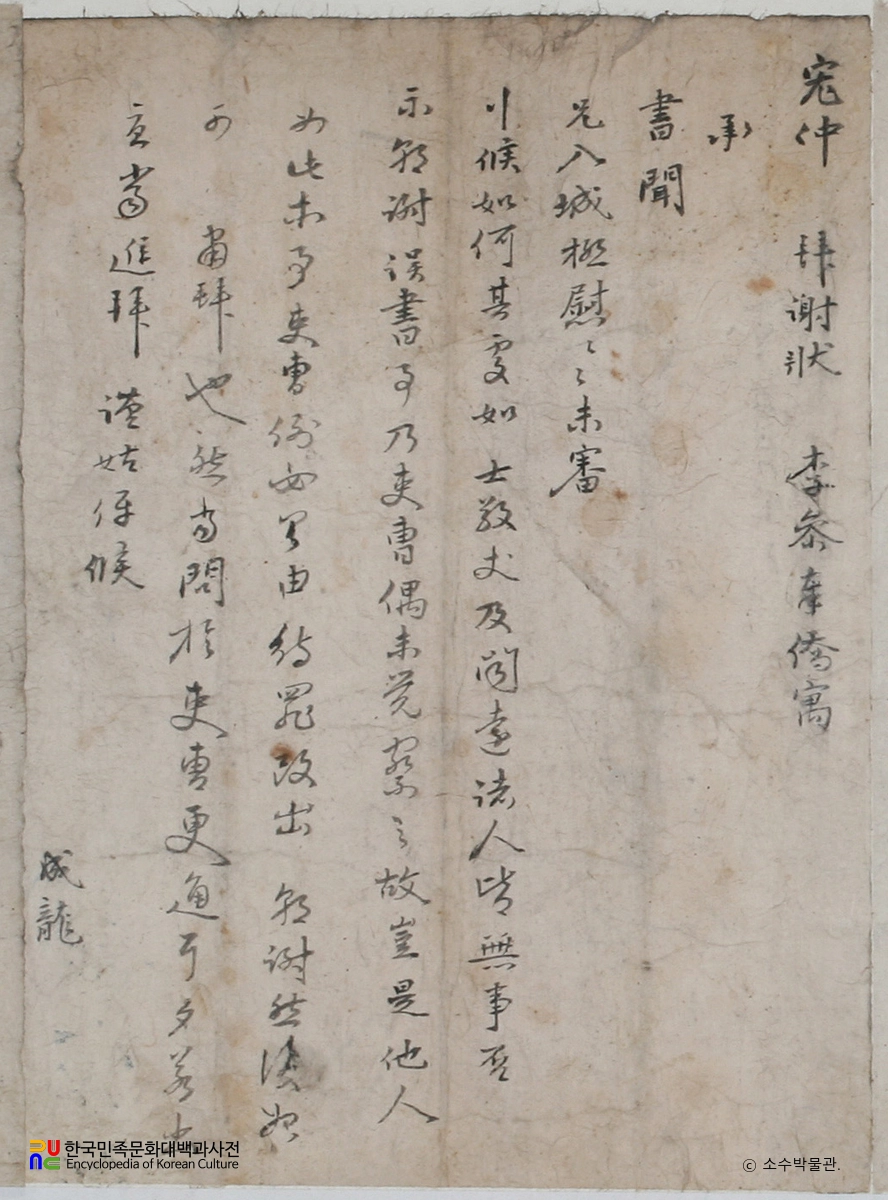 宏仲 拜謝狀 李參奉僑寓
承
書聞
兄入城極慰〻未審
行候如何其處如士敬丈及聞遠諸人皆無事否
示朝謝誤書事乃吏曹偶未覺察之故豈是他人
如此本事吏曹例必 由待罪改出 朝謝然後始
可 肅拜也然當問於吏曹更通耳夕若出
直當進拜 謹姑佇候
成龍
한국민족문화대백과사전
Encyclopedia of Korean Culture
ⓒ 소수박물관.